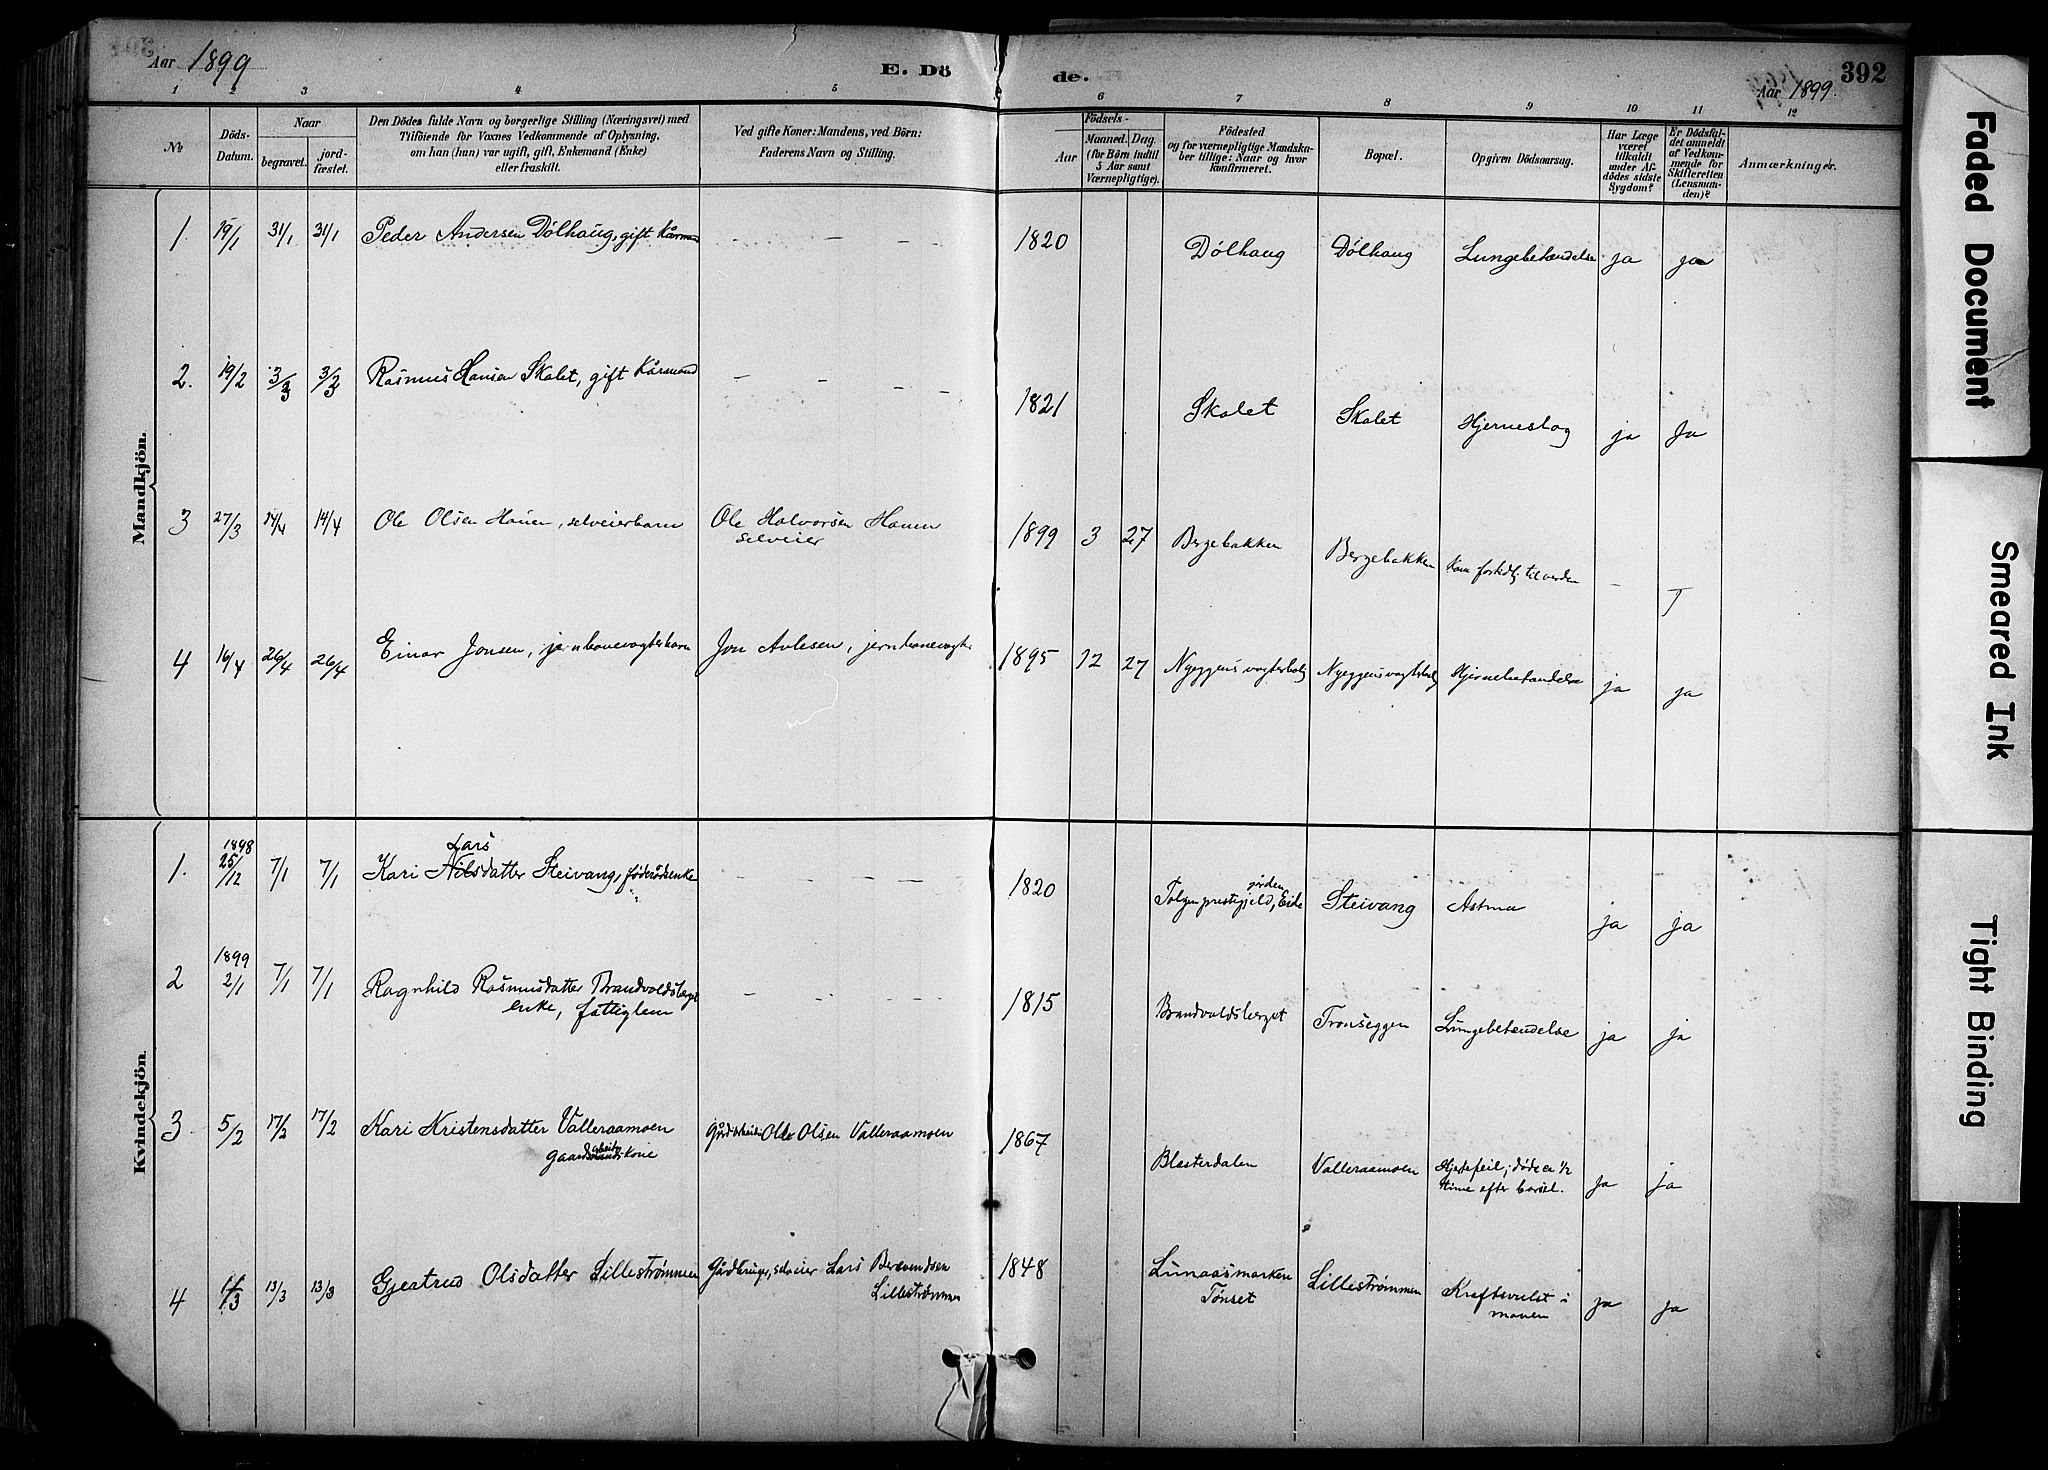 Aar 1899
E. Dö
de.
Aar 1899.
392
1 2 3 4 5 6 7 8 9 10 11 12
No
Döds-Datum.
Naar
begravet.
jordfæstet.
Den Dödes fulde Navn og borgerlige Stilling (Næringsvei) med
Tilföiende for Voxnes Vedkommende af Oplysning,
om han (hun) var ugift, gift, Enkemand (Enke)
eller fraskilt.
Ved gifte Koner: Mandens, ved Börn:
Faderens Navn og Stilling.
Födsels-
Aar
Maaned. Dag.
(for Börn indtil
5 Aar samt
Værnepligtige).
Födested
og for værnepligtige Mandskaber tillige: Naar og hvor
konfirmeret.
Bopæl.
Opgiven Dödsaarsag.
Har Læge
været
tilkaldt
under Afdödes sidste
Sygdom?
Er Dödsfaldet anmeldt
af Vedkommende for
Skifteretten
(Lensmanden)?
Anmærkninger.
Mandkjön.
1. 19/1 31/1 31/1 Peder Andersen Dölhaug, gift Kårmand 1820 Dölhaug Dölhaug Lungebetændelse ja ja
2. 19/2 3/3 3/3 Rasmus Hansen Skalet, gift Kårmand 1821 Skalet Skalet Hjerneslag ja Ja
3 27/3 14/4 14/4 Ole Olsen Hauen, selveierbarn Ole Halvorsen Hauen
selveier
1899 3 27 Bergebakken Bergebakken Kom fortidlig til verden - J
4 16/4 26/4 26/4 Einar Jonsen, jernbanevogterbarn Jon Avlesen, jernbanevogter 1895 12 27 Nyeggens vogterbolig Nyeggens vogterbolig Hjernebetændelse ja ja
Kvindekjön.
1. 1898
25/12 7/1 7/1 Kari Nilsdatter Steivang, föderådsenke
Lars
1820 Tolgen prestegjeld, Eide Steivang Astma ja ja
2 1899
2/1 7/1 7/1 Ragnhild Rasmusdatter Brandvoldsberget
enke, fattiglem
1815 Brandvoldsberget Tronseggen Lungebetændelse ja ja
3 5/2 17/2 17/2 Kari Kristensdatter Valleraamoen Ole Olsen Valleraamoen
1867 Blesterdalen Valleraamoen Hjertefeil; döde en 1/2
time efter barsel.
Ja ja
4 1/3 13/3 13/3 Gjertrud Olsdatter Lilleströmmen Gårdbruger, selveier Lars Berevendsen
Lilleströmmen
1848 Lunaasmarken
Tönset
Lilleströmmen Kraftsvulst i
maven
ja ja
Faded Document
Smeared Ink
Tight Binding